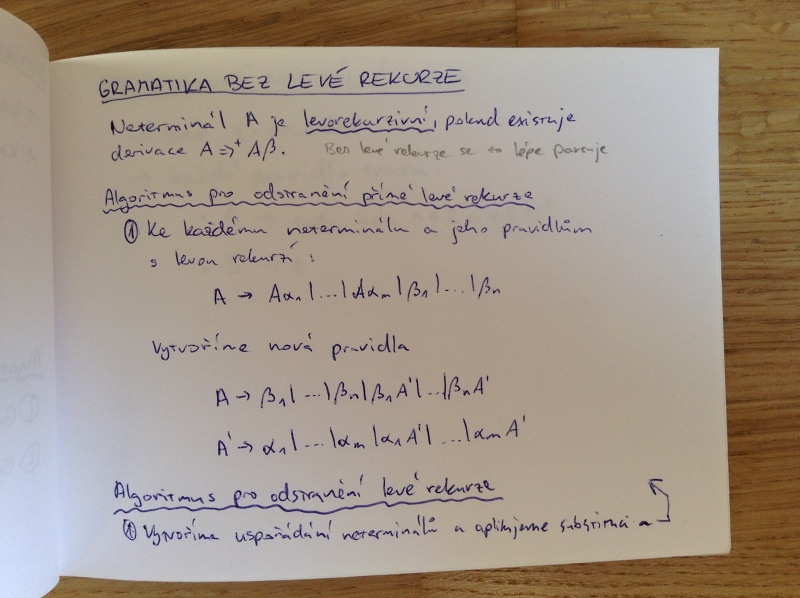 GRAMATIKA BEZ LEVÉ REKURZE
Neterminál A je levorekurzivní, pokud existuje
derivace A ⇒⁺ Aβ. Bez levé rekurze se to lépe parsuje
Algoritmus pro odstranění přímé levé rekurze
① Ke každému neterminálu a jeho pravidlům
s levou rekurzí:
A → Aα₁ | ... | Aαₘ | β₁ | ... | βₙ
Vytvoříme nová pravidla
A → β₁ | ... | βₙ | β₁A' | ... | βₙA'
A' → α₁ | ... | αₘ | α₁A' | ... | αₘA'
Algoritmus pro odstranění levé rekurze
① Vytvoříme uspořádání neterminálů a aplikujeme substituci a